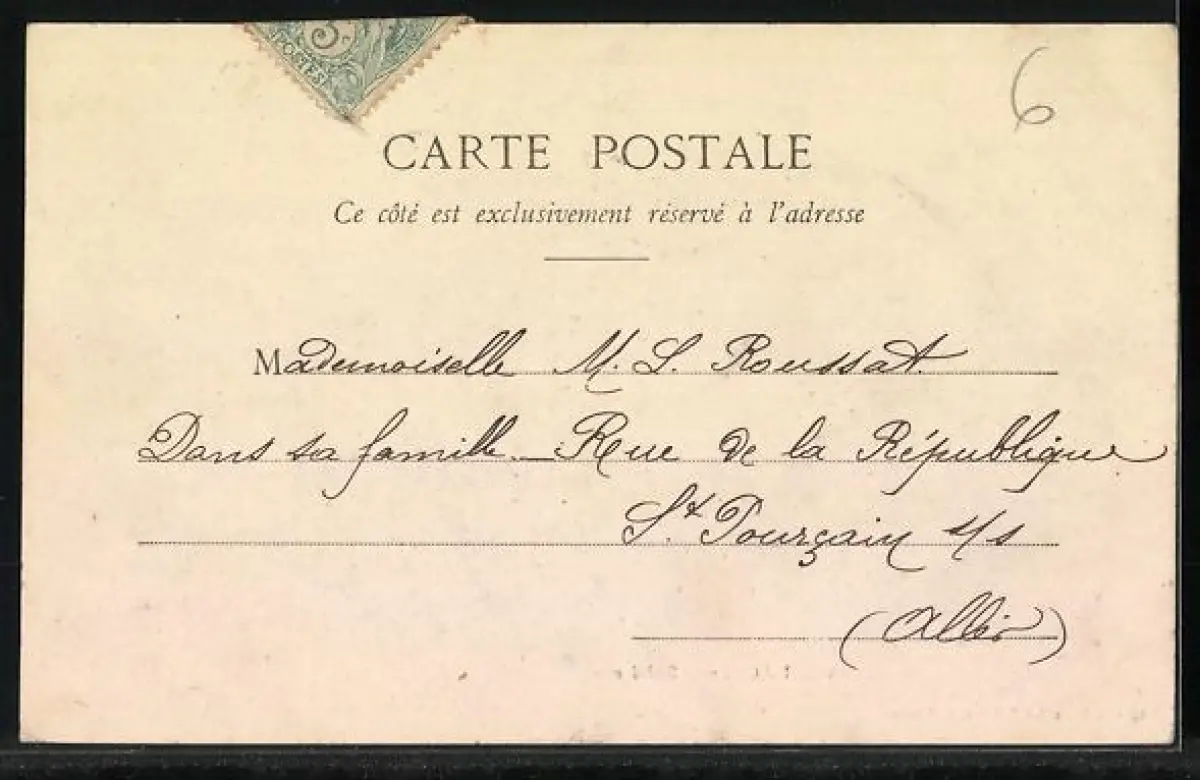 5c
POSTES
6
CARTE POSTALE
Ce côté est exclusivement réservé à l'adresse
Mademoiselle M. L. Roussat
Dans sa famille – Rue de la République
St Pourçain s/s
(Allier)